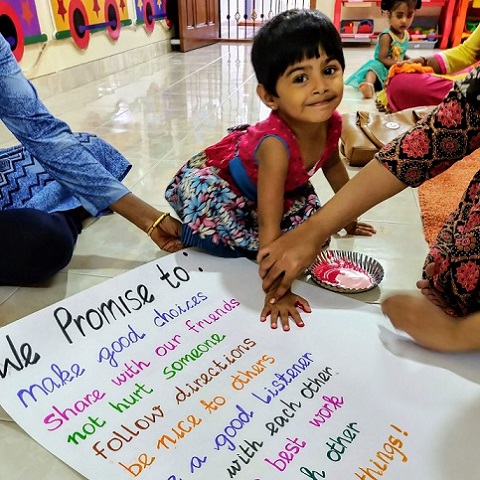 We Promise to:
make good choices
share with our friends
not hurt someone
follow directions
be nice to others
a good Listener
with each other
best work
other
things!